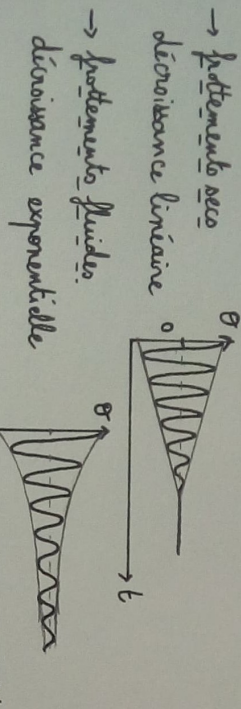 → frottements secs
décroissance linéaire
θ
0
t
→ frottements fluides.
décroissance exponentielle
θ